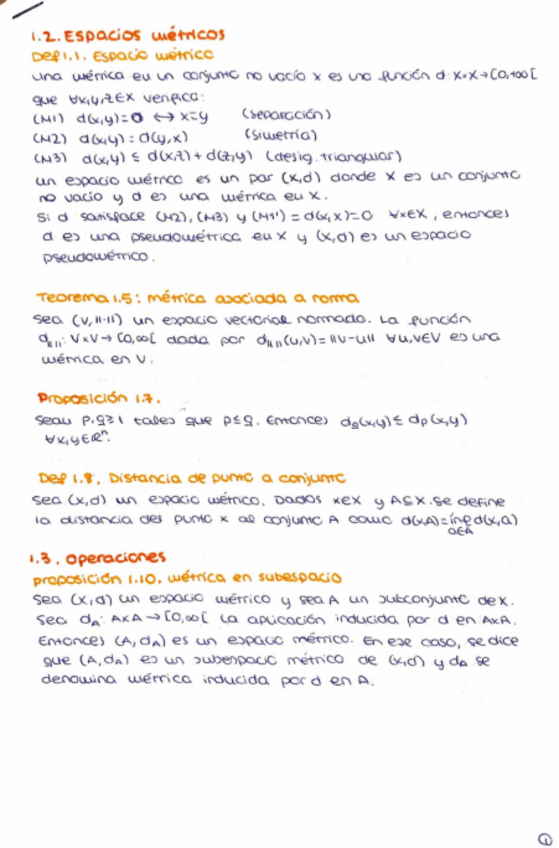 1.2. Espacios métricos
Def 1.1. Espacio métrico
Una métrica en un conjunto no vacío X es una función d: X×X→[0,+∞[
que ∀x,y,z∈X verifica:
(M1) d(x,y)=0 ↔ x=y (separación)
(M2) d(x,y) = d(y,x) (simetría)
(M3) d(x,y) ≤ d(x,z) + d(z,y) (desig. triangular)
Un espacio métrico es un par (X,d) donde X es un conjunto
no vacío y d es una métrica en X.
Si d satisface (M2), (M3) y (M1') = d(x,x)=0 ∀x∈X, entonces
d es una pseudométrica en X y (X,d) es un espacio
pseudométrico.
Teorema 1.5: métrica asociada a norma
Sea (V,||·||) un espacio vectorial normado. La función
d||·||: V×V→ [0,∞[ dada por d||·||(u,v)=||v-u|| ∀u,v∈V es una
métrica en V.
Proposición 1.7.
Sean p,q≥1 tales que p≤q. Entonces dq(x,y) ≤ dp(x,y)
∀x,y∈ℝⁿ.
Def 1.8. Distancia de punto a conjunto
Sea (X,d) un espacio métrico. Dados x∈X y A⊆X. Se define
la distancia del punto x al conjunto A como d(x,A)=ínf d(x,a)
a∈A
1.3. Operaciones
Proposición 1.10. métrica en subespacio
Sea (X,d) un espacio métrico y sea A un subconjunto de X.
Sea dA: A×A → [0,∞[ la aplicación inducida por d en A×A.
Entonces (A,dA) es un espacio métrico. En ese caso, se dice
que (A,dA) es un subespacio métrico de (X,d) y dA se
denomina métrica inducida por d en A.
1